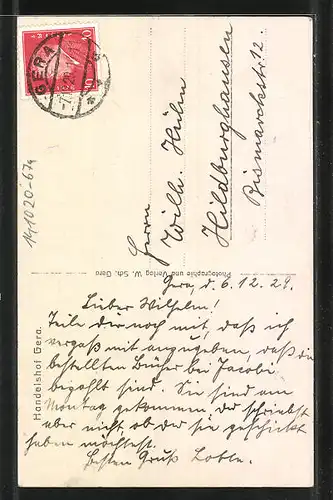 GERA
Herrn
Wilh. Hühn
Hildburghausen
Bismarckstr. 12.
Photographie und Verlag W. Sch. Gera
Handelshof Gera.
Gera, d. 6.12.29.
Lieber Wilhelm!
Teile dir noch mit, daß ich
vergaß mit anzugeben, daß die
bestellten Bücher bei Jacobi
bezahlt sind. Sie sind am
Montag gekommen. Du schriebst
aber nicht, ob du sie geschickt
haben möchtest.
Besten Gruß